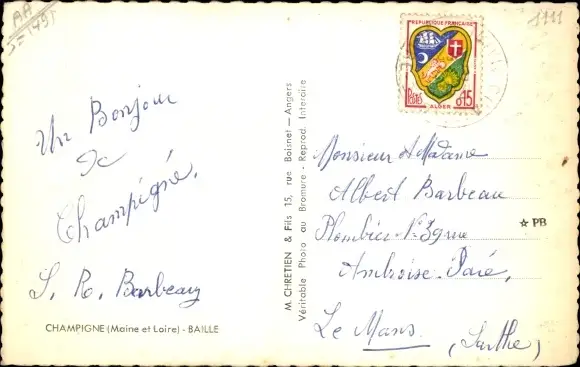 AA
1111
REPUBLIQUE FRANÇAISE
POSTES
ALGER
0,15
Un Bonjour
de
Champigné.
S. R. Barbeau
CHAMPIGNE (Maine et Loire) - BAILLE
M. CHRETIEN & Fils 15, rue Boisnet — Angers
Véritable Photo au Bromure - Reprod. Interdite
Monsieur & Madame
Albert Barbeau
Ambroise Paré,
☆ PB
Le Mans.
(Sarthe)